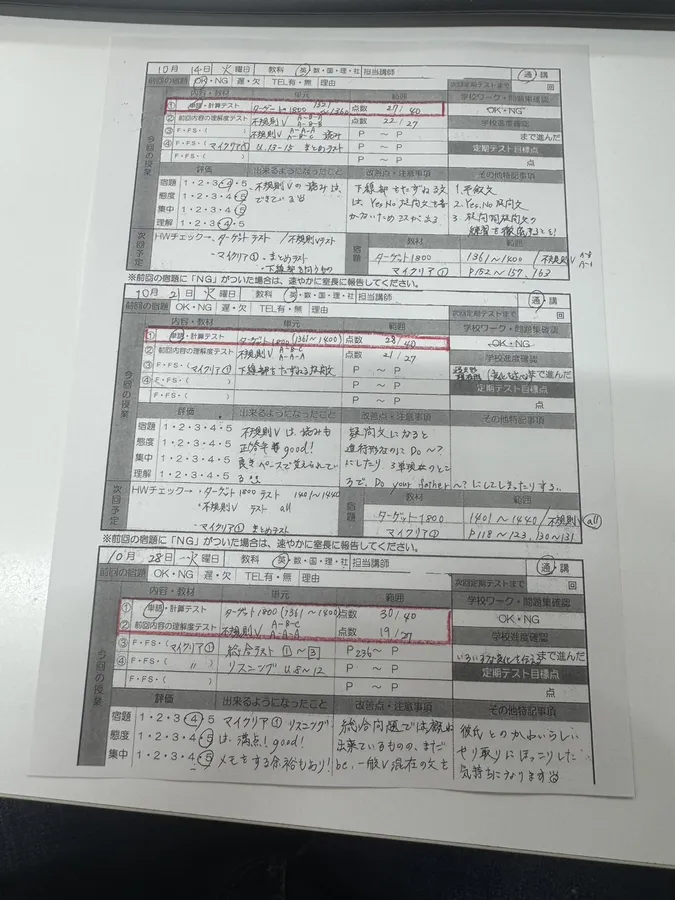 10月 14日 火 曜日 教科 英・数・国・理・社 担当講師 通・講
前回の宿題 OK・NG 遅・欠 TEL有・無 理由 次回定期テストまで 回
内容・教材 単元 範囲 学校ワーク・問題集確認
① 単語・計算テスト ターゲット1800 1321～1360 点数 27/40 OK・NG
② 前回内容の理解度テスト 不規則V A-B-A A-B-B 点数 22/27 学校進度確認
③ F・FS・( ) 不規則V A-A-A A-B-C 読み P ～ P まで進んだ
④ F・FS・(マイクリア① ) U.13-15 まとめテスト P ～ P 定期テスト目標点
P ～ P 点
今回の授業
評価 出来るようになったこと 改善点・注意事項 その他特記事項
宿題 1・2・3・4・5 不規則Vの読みは 下線部をたずねる文 1. 平叙文
態度 1・2・3・4・5 できている は Yes,No 疑問文を書 2. Yes,No 疑問文
集中 1・2・3・4・5 かないため ミスが出る 3. 疑問詞疑問文の
理解 1・2・3・4・5 練習を徹底すること!
次回予定
HWチェック→ ターゲット テスト /不規則Vテスト 宿題 教材 範囲
・マイクリア① まとめテスト ターゲット1800 1361～1400 /不規則V
・下線部を問うもの マイクリア① P152～157, 163
※前回の宿題に「NG」がついた場合は、速やかに室長に報告してください。
10月 21日 火 曜日 教科 英・数・国・理・社 担当講師 通・講
前回の宿題 OK・NG 遅・欠 TEL有・無 理由 次回定期テストまで 回
内容・教材 単元 範囲 学校ワーク・問題集確認
① 単語・計算テスト ターゲット1800 (1361～1400) 点数 28/40 OK・NG
② 前回内容の理解度テスト 不規則V A-B-C A-A-A 点数 21/27 学校進度確認
③ F・FS・(マイクリア①) 下線部をたずねる疑問文 P ～ P まで進んだ
④ F・FS・( ) P ～ P 定期テスト目標点
P ～ P 点
今回の授業
評価 出来るようになったこと 改善点・注意事項 その他特記事項
宿題 1・2・3・4・5 不規則Vは 読みも 疑問文になると
態度 1・2・3・4・5 正答率もgood! 進行形なのに Do～?
集中 1・2・3・4・5 良きペースで覚えられてい にしたり 3単現sのとこ
理解 1・2・3・4・5 る ろで、Do your father～? にしてしまったりする。
次回予定
HWチェック→・ターゲット1800 テスト 1401～1440 宿題 教材 範囲
・不規則V テスト all ターゲット1800 1401～1440 /不規則V all
・マイクリア① まとめテスト マイクリア① P118～123, 130～131
※前回の宿題に「NG」がついた場合は、速やかに室長に報告してください。
10月 28日 火 曜日 教科 英・数・国・理・社 担当講師 通・講
前回の宿題 OK・NG 遅・欠 TEL有・無 理由 次回定期テストまで 回
内容・教材 単元 範囲 学校ワーク・問題集確認
① 単語・計算テスト ターゲット1800 (1361～1400) 点数 30/40 OK・NG
② 前回内容の理解度テスト 不規則V A-B-C A-A-A 点数 19/27 学校進度確認
③ F・FS・(マイクリア①) 総合テスト 1～3 P236～ P まで進んだ
④ F・FS・( 〃 ) リスニング U.8～12 P ～ P 定期テスト目標点
P ～ P 点
今回の授業
評価 出来るようになったこと 改善点・注意事項 その他特記事項
宿題 1・2・3・4・5 マイクリア① リスニング 総合問題では概ね 彼氏とのかわいらしい
態度 1・2・3・4・5 は、満点! good! 出来ているものの、まだ やり取りにほっこりした
集中 1・2・3・4・5 メモをする余裕もあり! be, 一般V混在の文を 気持ちになります